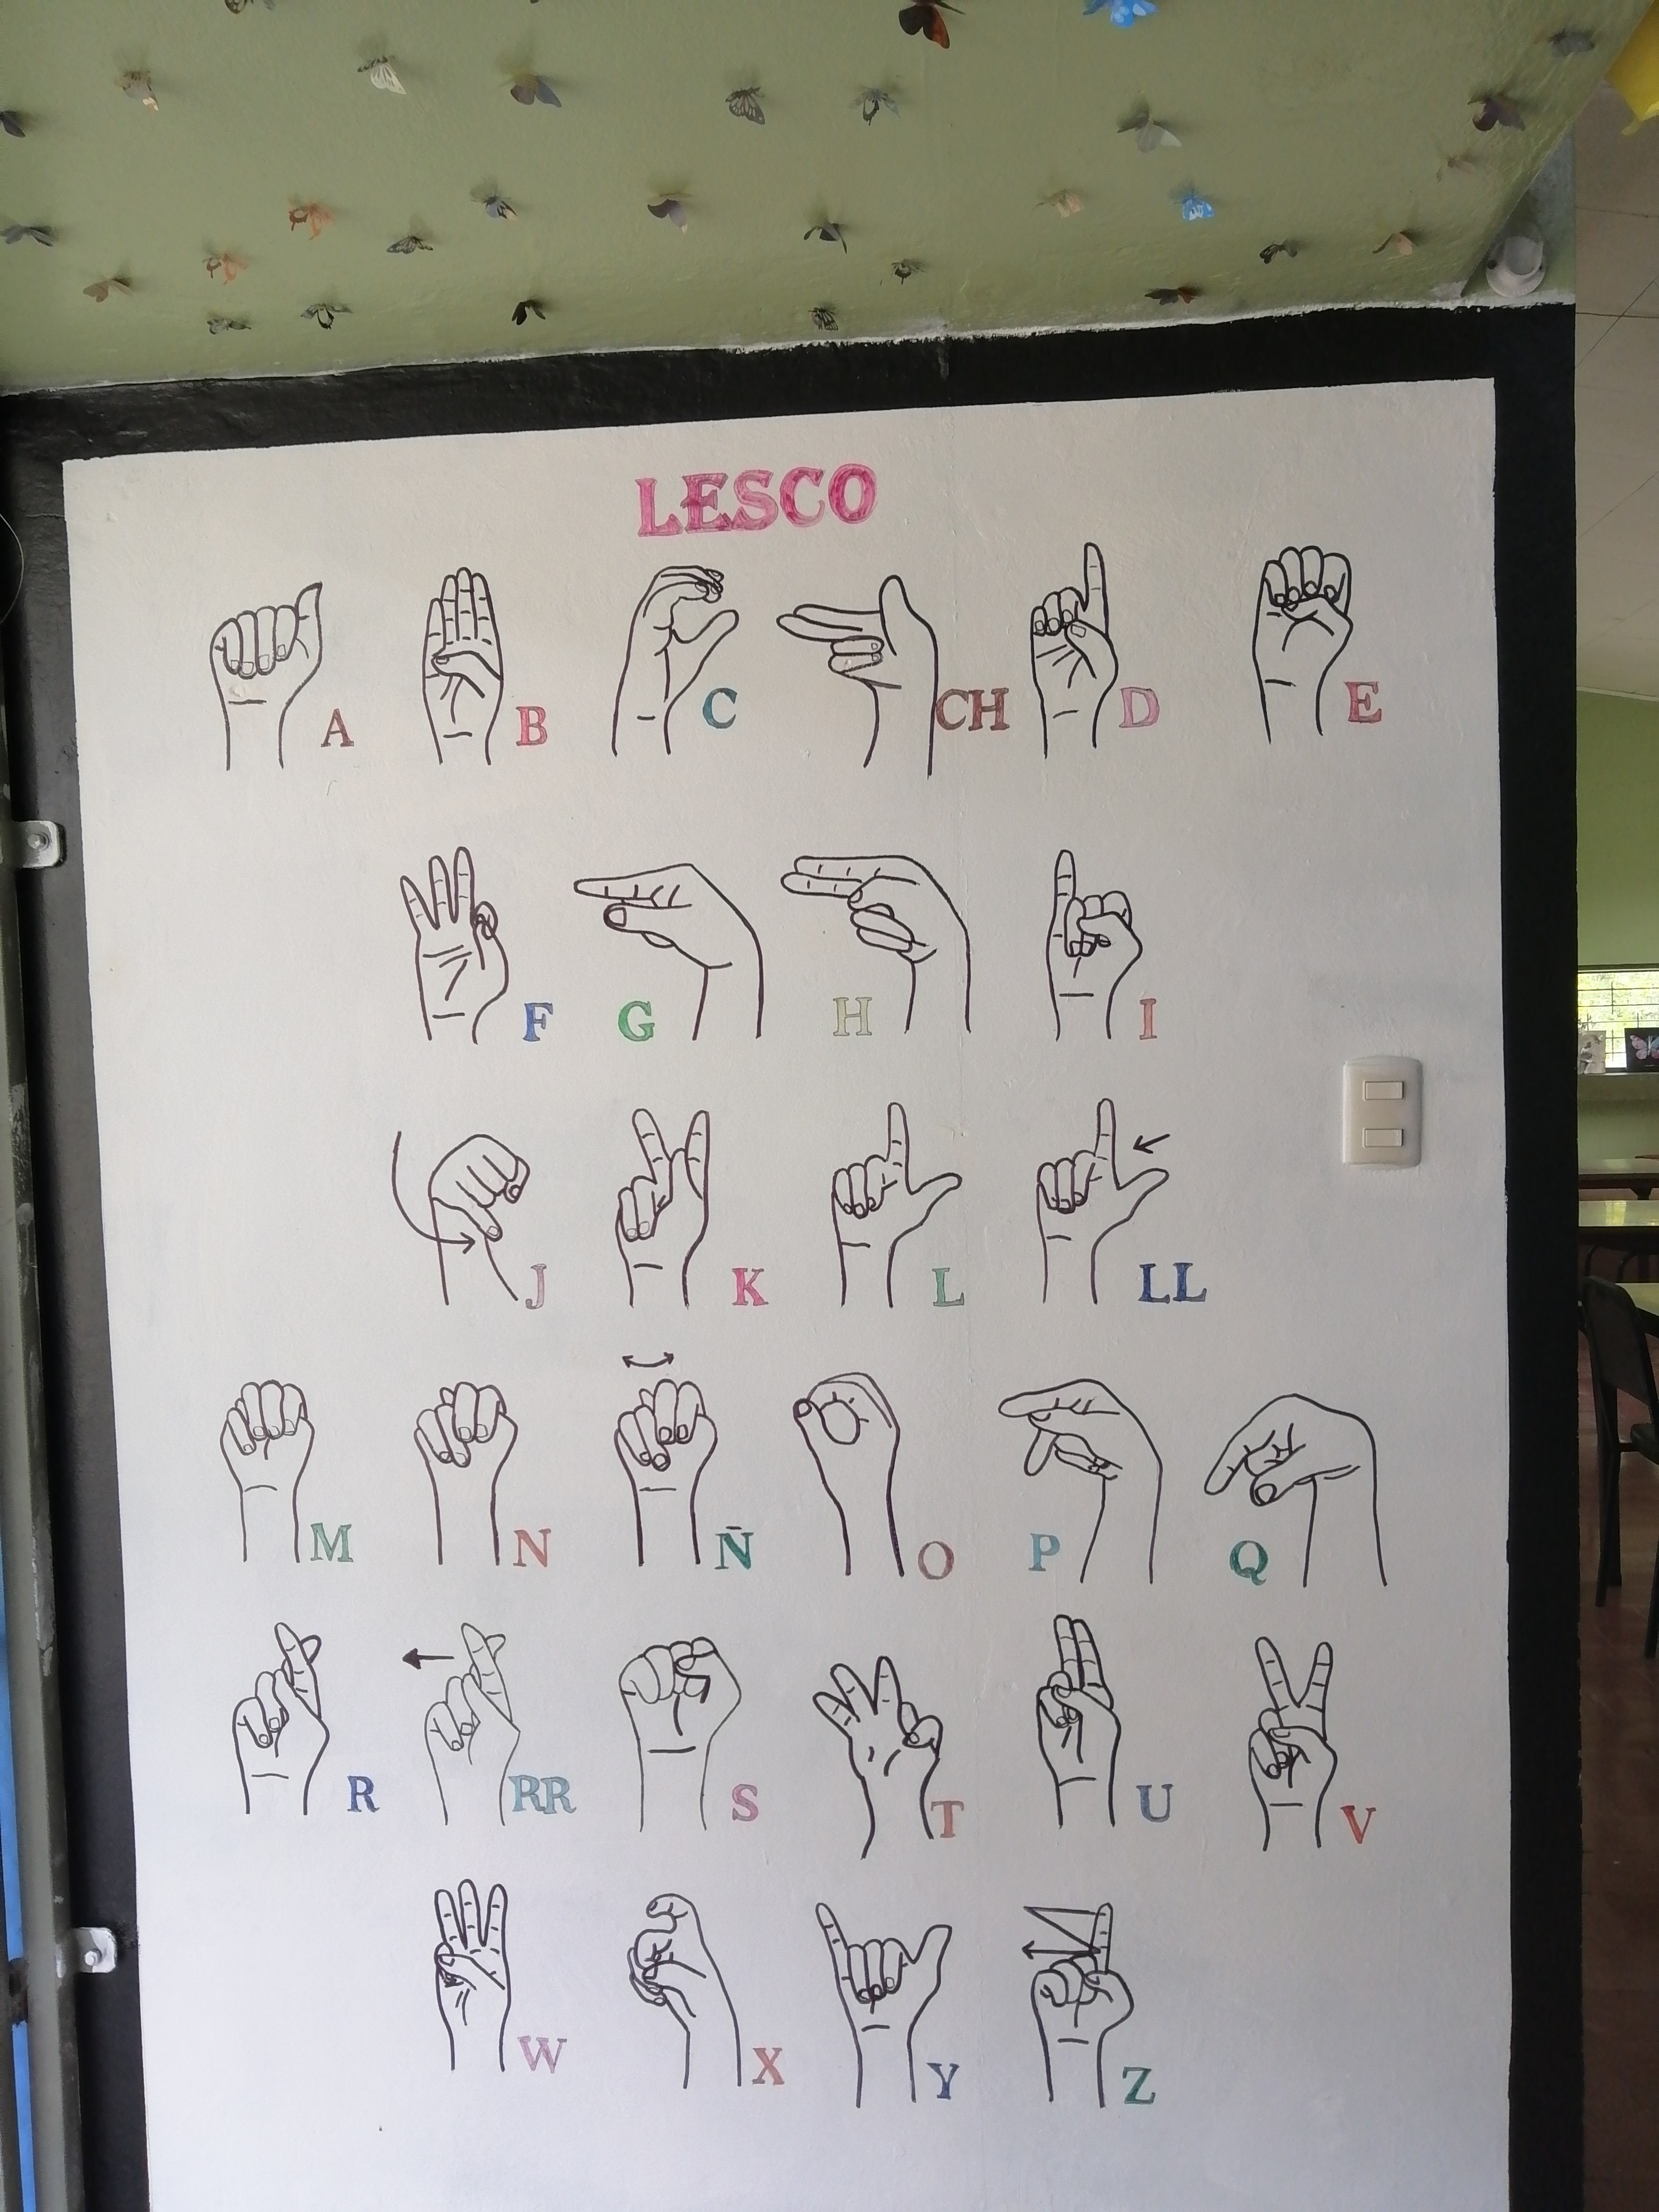 LESCO
A B C CH D E
F G H I
J K L LL
M N Ñ O P Q
R RR S T U V
W X Y Z